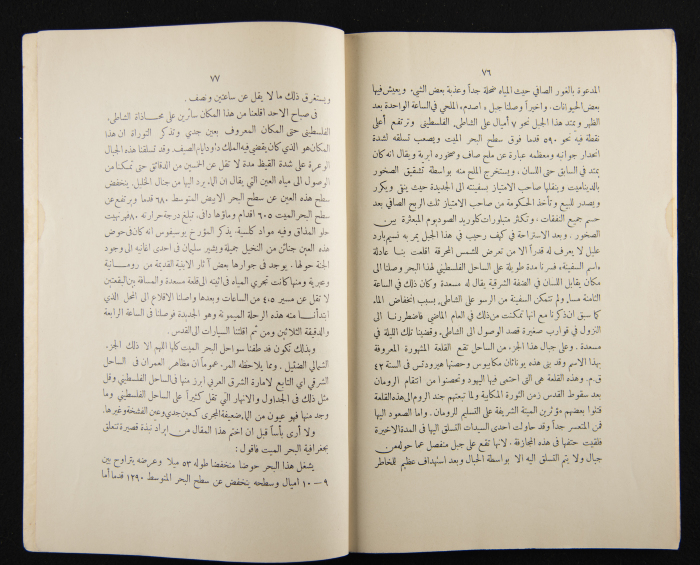 ٧٦
المدعوة بالغور الصافي حيث المياه ضحلة جداً وعذبة بعض الشيء. ويعيش فيها
بعض الحيوانات. واخيراً وصلنا جبل «اصدم» الملحي في الساعة الواحدة بعد
الظهر ويمتد هذا الجبل نحو ٧ أميال على الشاطيء الفلسطيني وترتفع أعلى
نقطة فيه نحو ٥٩٠ قدما فوق سطح البحر الميت ويصعب تسلقه لشدة
انحدار جوانبه ومعظمه عبارة عن ملح صاف وصخوره ابرية ويقال انه كان
يمتد في السابق حتى اللسان. ويستخرج الملح منه بواسطة تشقيق الصخور
بالديناميت وينقلها صاحب الامتياز بسفينته الى الجديدة حيث ينقى ويكرر
ويصدر للبيع وتأخذ الحكومة من صاحب الامتياز ثلث الربح الصافي بعد
حسم جميع النفقات. وتكثر متبلورات كلوريد الصوديوم المبعثرة بين
الصخور. وبعد الاستراحة في كيف رحيب في هذا الجبل يمر به نسيم بارد
عليل لا يعرف له قدراً الا من تعرض للشمس المحرقة اقلعت بنا عادلة
«اسم السفينة» فسرنا مدة طويلة على الساحل الفلسطيني لهذا البحر وصلنا الى
مكان يقابل اللسان في الضفة الشرقية يقال له مسعدة وكان ذلك في الساعة
الثامنة مساء ولم تتمكن السفينة من الرسو على الشاطيء بسبب انخفاض الماء
كما سبق ان ذكرنا مع انها تمكنت من ذلك في العام الماضي فاضطررنا الى
النزول في قوارب صغيرة قصد الوصول الى الشاطيء. وقضينا تلك الليلة في
مسعدة. وعلى جبال هذا الجزء من الساحل تقع القلعة المشهورة المعروفة
بهذا الاسم وقد بنى هذه يوناثان مكابيوس وحصنها هيرودتس في السنة ٤٢
ق.م. وهذه القلعة هي التي احتمى فيها اليهود وتحصنوا من انتقام الرومان
بعد سقوط القدس زمن الثورة المكابية ولما تبعتهم جند الروم الى هذه القلعة
قتلوا بعضهم مؤثرين الميتة الشريفة على التسليم للرومان. واما الصعود اليها
فمن المتعسر جداً وقد حاولت احدى السيدات التسلق اليها في المدة الاخيرة
فلقيت حتفها في هذه المجازفة. لانها تقع على جبل منفصل عما حوله من
جبال ولا يتم التسلق اليه الا بواسطة الحبال وبعد استهداف عظيم للخاطر
٧٧
ويستغرق ذلك ما لا يقل عن ساعتين ونصف.
في صباح الاحد اقلعنا من هذا المكان سائرين على محاذاة الشاطيء
الفلسطيني حتى المكان المعروف بعين جدي وتذكر التوراة ان هذا
المكان هو الذي كان يقضي فيه الملك داود ايام الصيف. وقد تسلقنا هذه الجبال
الوعرة على شدة القيظ مدة لا تقل عن الخمسين من الدقائق حتى تمكنا من
الوصول الى مياه العين التي يقال ان الماء يرد اليها من جبال الخليل. ينخفض
سطح هذه العين عن سطح البحر الابيض المتوسط ٦٨٠ قدما ويرتفع عن
سطح البحر الميت ٦٠٥ اقدام وماؤها دافيء تبلغ درجة حرارته ٨٠ فهرنهيت
حلو المذاق وفيه مواد كلسية. يذكر المؤرخ يوسيفوس انه كان في حوض
هذه العين جنائن من النخيل جميلة ويشير سليمان في احدى اغانيه الى وجود
الجنة حولها. يوجد في جوارها بعض آثار الابنية القديمة من رومانية
وعبرية ومنها كانت تجري المياه في اقنية الى قلعة مسعدة والمسافة بين البقعتين
لا تقل عن مسير ٤٫٥ من الساعات وبعدها واصلنا الاقلاع الى المحل الذي
ابتدأنا منه هذه الرحلة الميمونة وهو الجديدة فوصلنا في الساعة الرابعة
والدقيقة الثلاثين ومن ثم اقلتنا السيارات الى القدس.
وبذلك نكون قد طفنا سواحل البحر الميت كلها اللهم الا ذلك الجزء
الشمالي الضئيل. ومما يلاحظه المرء عموماً ان مظاهر العمران في الساحل
الشرقي اي التابع لامارة الشرق العربي ابرز منها في الساحل الفلسطيني وقل
مثل ذلك في الجداول والانهار التي تقل كثيراً على الساحل الفلسطيني وما
وجد منها فهو عيون من الماء ضعيفة المجرى كعين جدي وعين الفشخة وغيرها.
ولا أرى بأساً قبل ان اختم هذا المقال من ايراد نبذة قصيرة تتعلق
بجغرافية البحر الميت فاقول:
يشغل هذا البحر حوضا منخفضا طوله ٥٣ ميلا وعرضه يتراوح بين
٩ — ١٠ اميال وسطحه ينخفض عن سطح البحر المتوسط ١٢٩٠ قدما أما